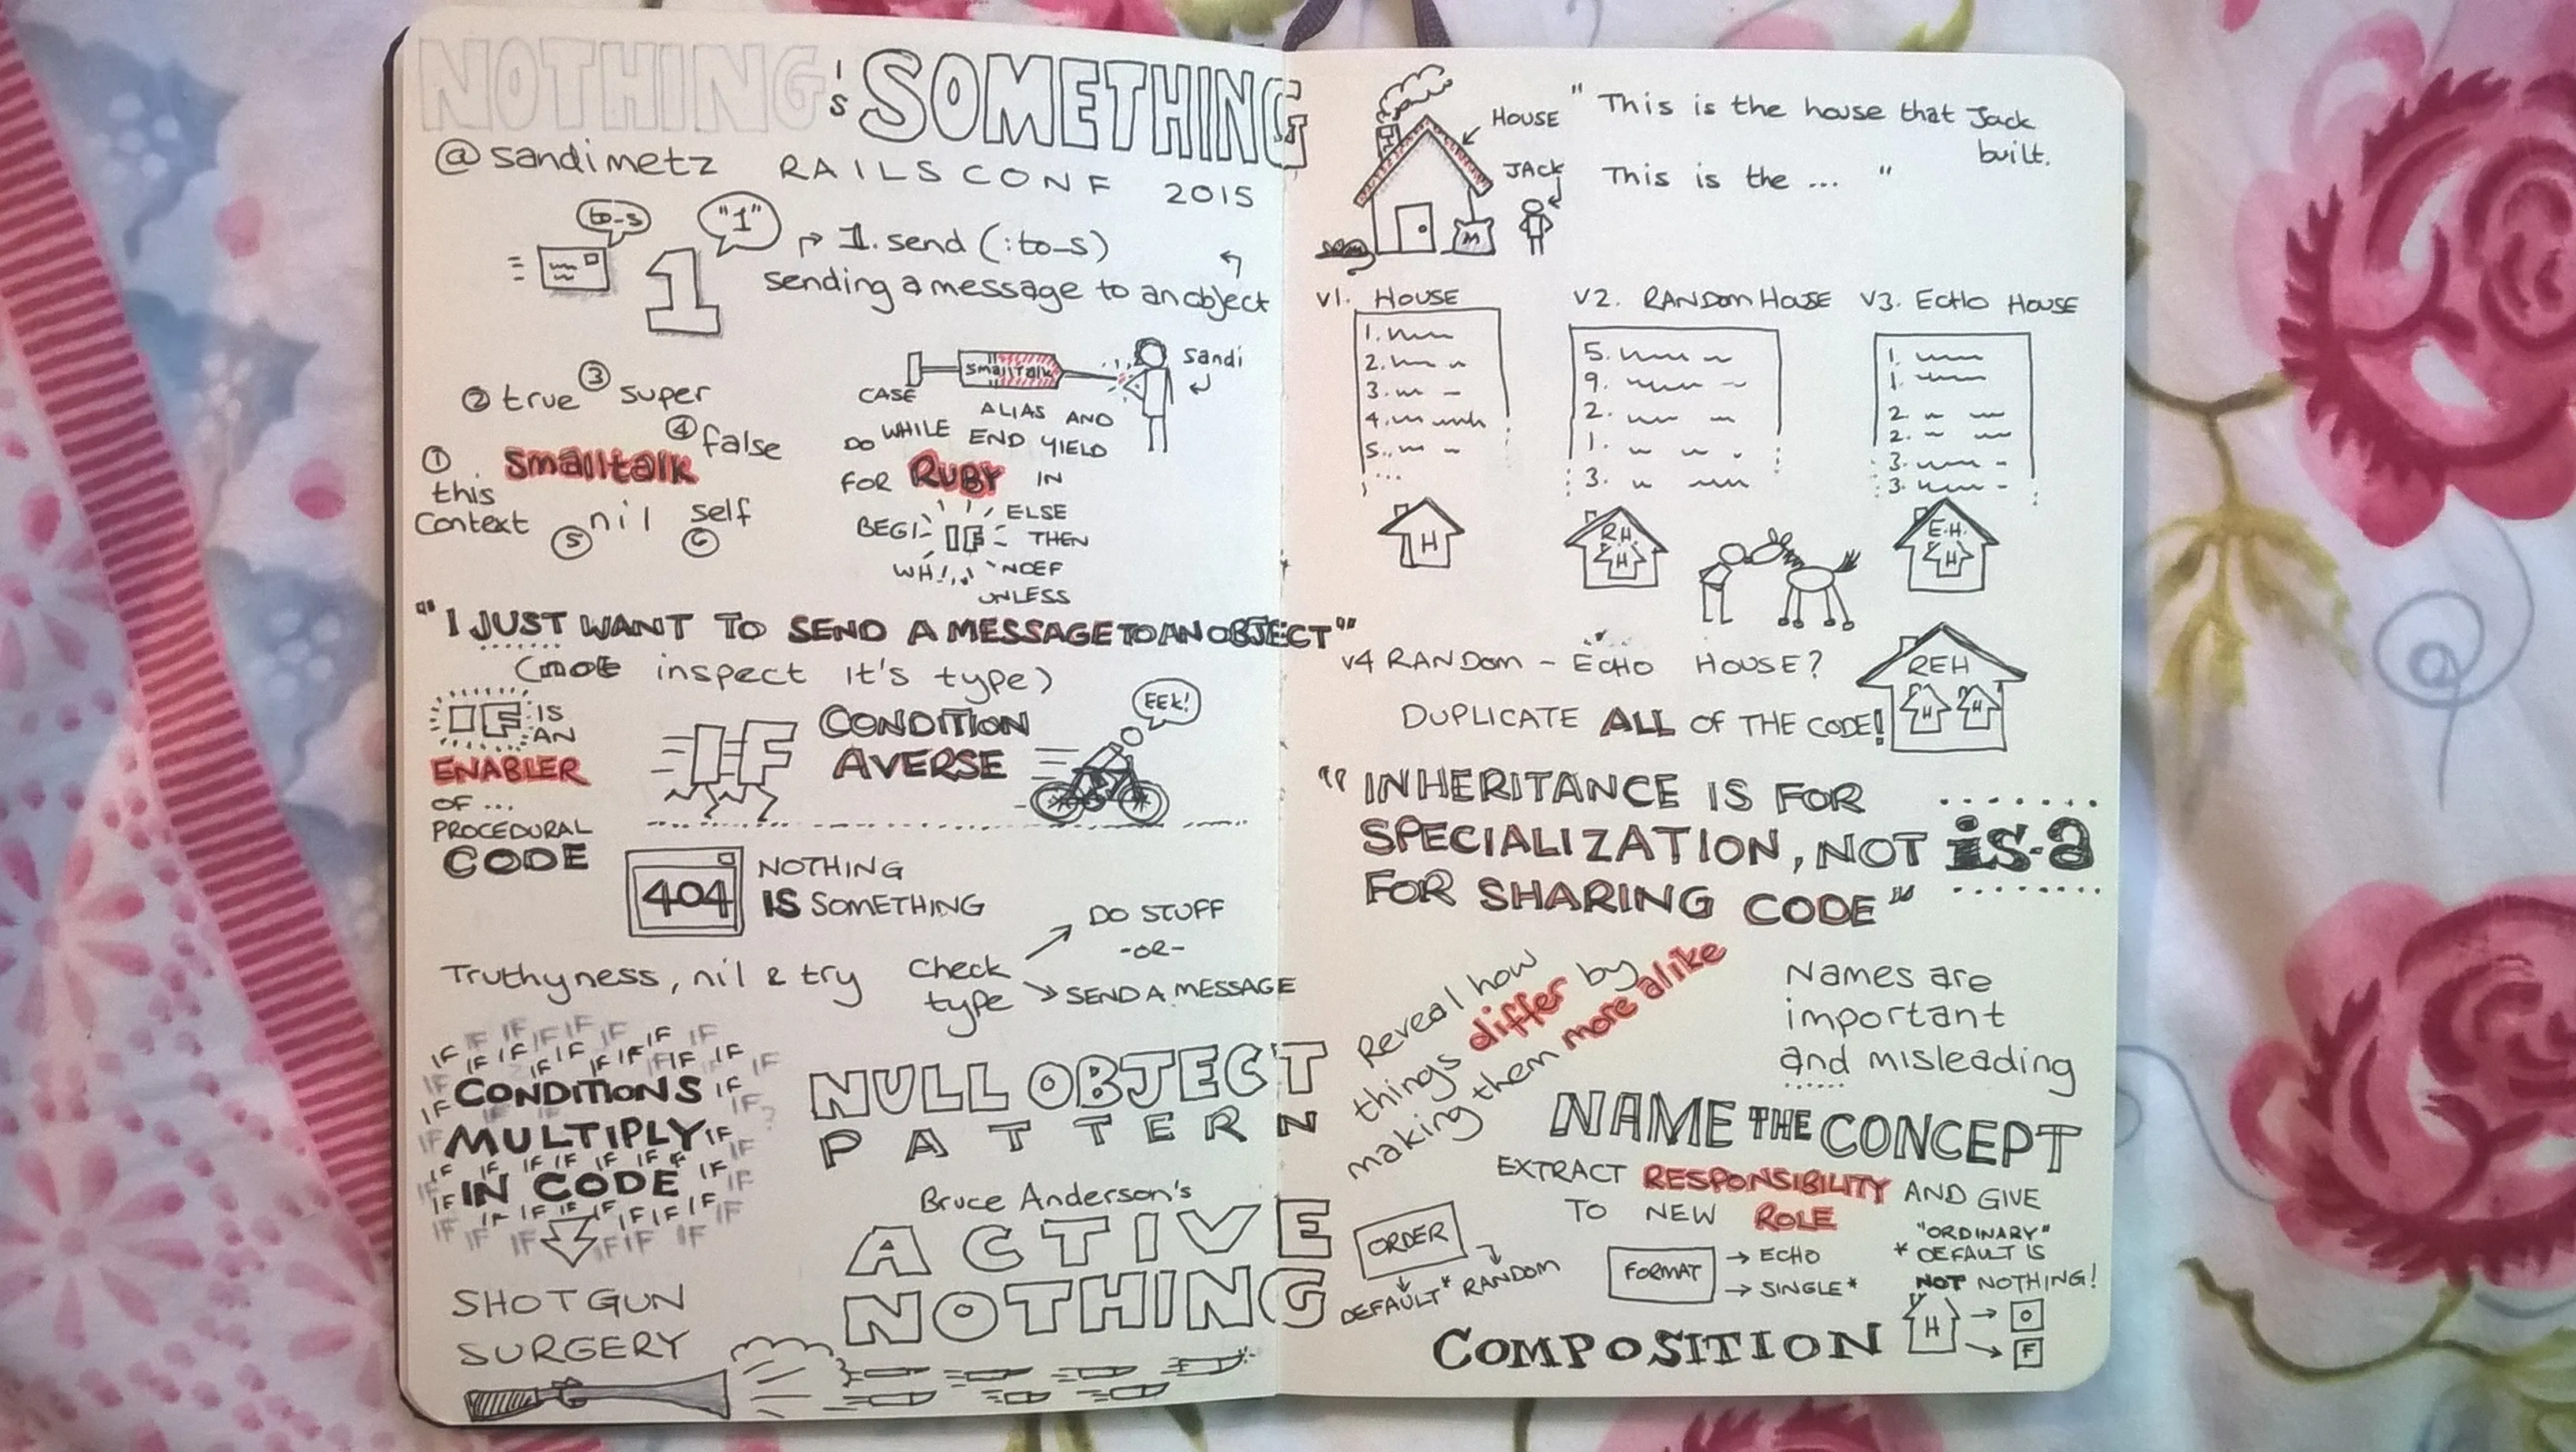 NOTHING IS SOMETHING
@sandimetz RAILSCONF 2015
to_s
"1"
1
1.send(:to_s)
sending a message to an object
② true ③ super
④ false
① this context
Smalltalk
⑤ nil ⑥ self
smalltalk
Sandi
CASE ALIAS AND
DO WHILE END YIELD
FOR RUBY IN
BEGI IF ELSE
THEN
WH
UNLESS
"I JUST WANT TO SEND A MESSAGE TO AN OBJECT"
(not inspect it's type)
IF IS
AN
ENABLER
OF ...
PROCEDURAL
CODE
IF
CONDITION
AVERSE
EEK!
404
NOTHING
IS SOMETHING
Truthyness, nil & try
Check
type
DO STUFF
-OR-
SEND A MESSAGE
IF IF IF IF IF IF IF
CONDITIONS
MULTIPLY
IN CODE
SHOTGUN
SURGERY
NULL OBJECT
PATTERN
Bruce Anderson's
ACTIVE
NOTHING
HOUSE
JACK
M
"This is the house that Jack
built.
This is the ... "
V1. HOUSE
1.
2.
3.
4.
5.
...
V2. RANDOM HOUSE
5.
9.
2.
1.
3.
V3. ECHO HOUSE
1.
1.
2.
2.
3.
3.
H
R.H.
H
E.H.
H
V4 RANDOM - ECHO HOUSE?
REH
H H
DUPLICATE ALL OF THE CODE!
"INHERITANCE IS FOR
SPECIALIZATION, NOT
FOR SHARING CODE"
is-a
Reveal how
things differ by
making them more alike
Names are
important
and misleading
NAME THE CONCEPT
EXTRACT RESPONSIBILITY AND GIVE
TO NEW ROLE
ORDER
DEFAULT* RANDOM
FORMAT
→ ECHO
→ SINGLE*
"ORDINARY"
* DEFAULT IS
NOT NOTHING!
COMPOSITION
H → O
→ F